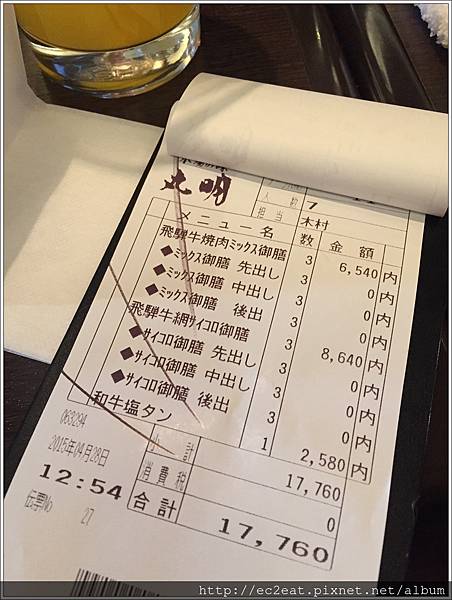 丸明
人数 7
担当 木村
メニュー名 数 金額
飛騨牛焼肉ミックス御膳 3 6,540内
◆ミックス御膳 先出し 3 0内
◆ミックス御膳 中出し 3 0内
◆ミックス御膳 後出 3 0内
飛騨牛網サイコロ御膳 3 8,640内
◆サイコロ御膳 先出し 3 0内
◆サイコロ御膳 中出し 3 0内
◆サイコロ御膳 後出 3 0内
和牛塩タン 1 2,580内
小計 17,760
消費税 0
合計 17,760
063294
2015年04月28日
12:54
伝票No 27
http://ec2eat.pixnet.net/album